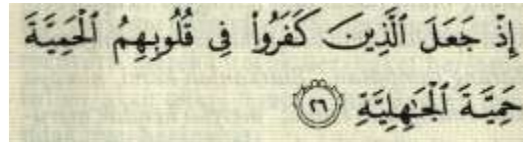 إِذْ جَعَلَ ٱلَّذِينَ كَفَرُوا۟ فِى قُلُوبِهِمُ ٱلْحَمِيَّةَ
حَمِيَّةَ ٱلْجَٰهِلِيَّةِ ٢٦